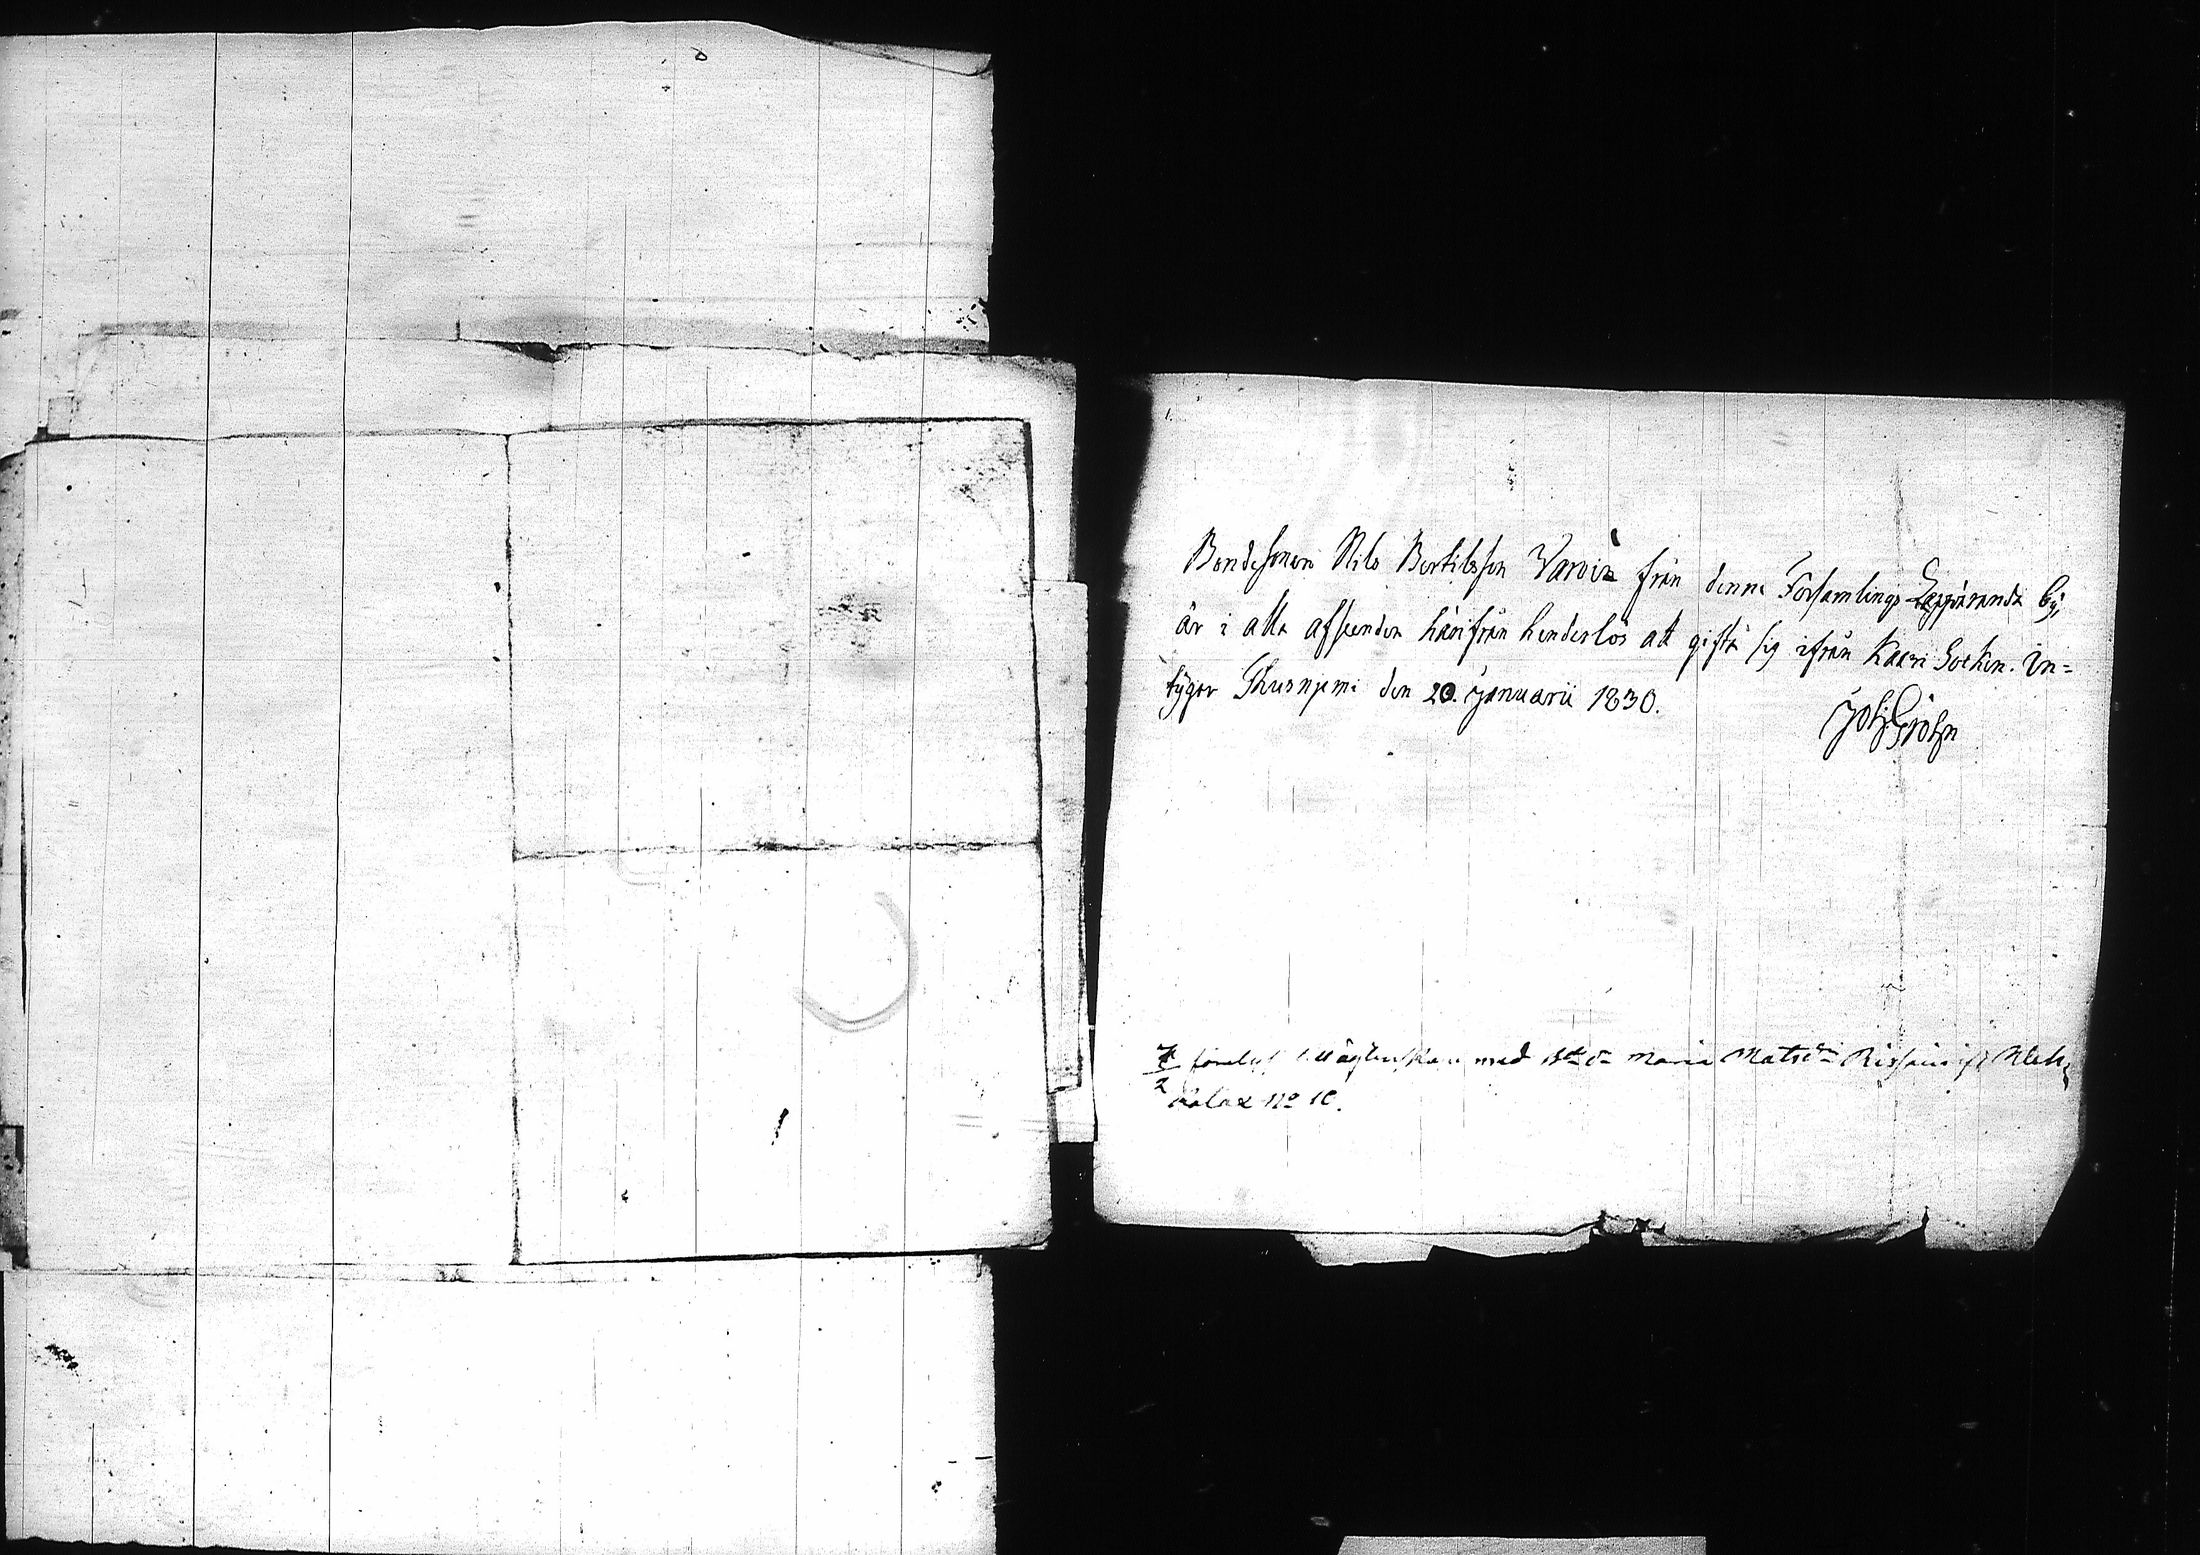 Bondesonen Nils Bertilsson Varoin från denne Församlings Leppäranda by,
är i alla afseenden härifrån hinderlös att gifta sig ifrån Kaavi Socken. in=
tygar Thusnjemi den 20. Januarii 1830.
Joh Gröhn
7/2 förelyst med Maria Matsdr
No 10.